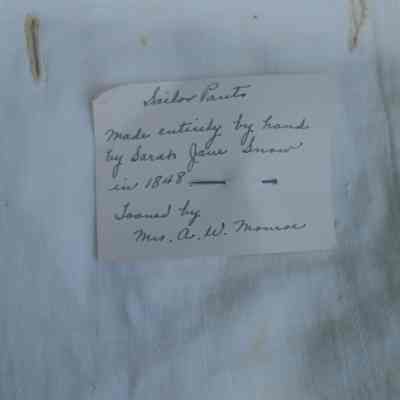 Sailor Pants
Made entirely by hand
by Sarah Jane Snow
in 1848
Loaned by
Mrs. A. W. Monroe